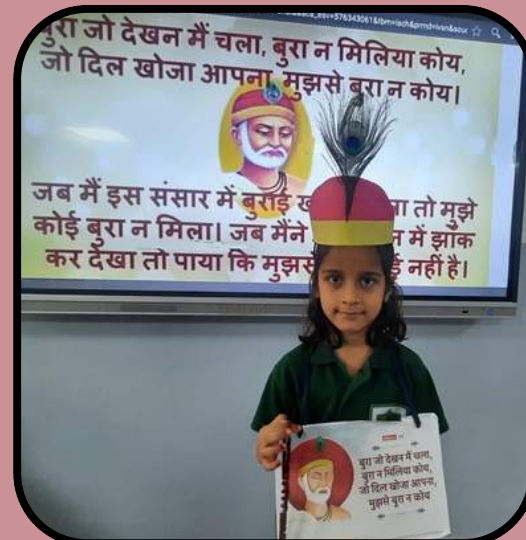 576343061&tbm=isch&prmd=ivsn&sour
बुरा जो देखन मैं चला, बुरा न मिलिया कोय,
जो दिल खोजा आपना, मुझसे बुरा न कोय।
जब मैं इस संसार में बुराई ख ला तो मुझे
कोई बुरा न मिला। जब मैंने न में झाँक
कर देखा तो पाया कि मुझसे ई नहीं है।
बुरा जो देखन मैं चला,
बुरा न मिलिया कोय,
जो दिल खोजा आपना,
मुझसे बुरा न कोय